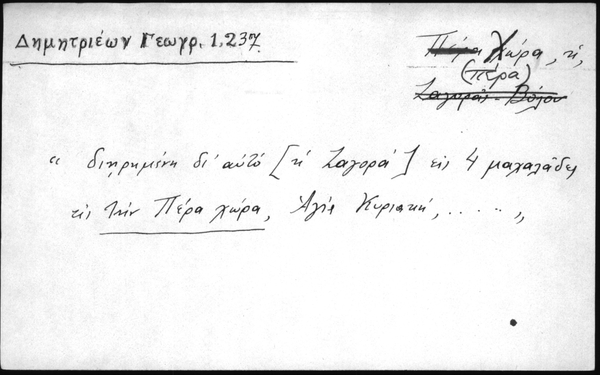 Δημητριέων Γεωγρ. 1,237.
Πέρα Χώρα, ἡ,
(πέρα)
Ζαγορά - Βόλου
“ διῃρημένη δι' αὐτό [ἡ Ζαγορά] εἰς 4 μαχαλάδες
εἰς τὴν Πέρα χώρα, Ἁγία Κυριακή, ..... „